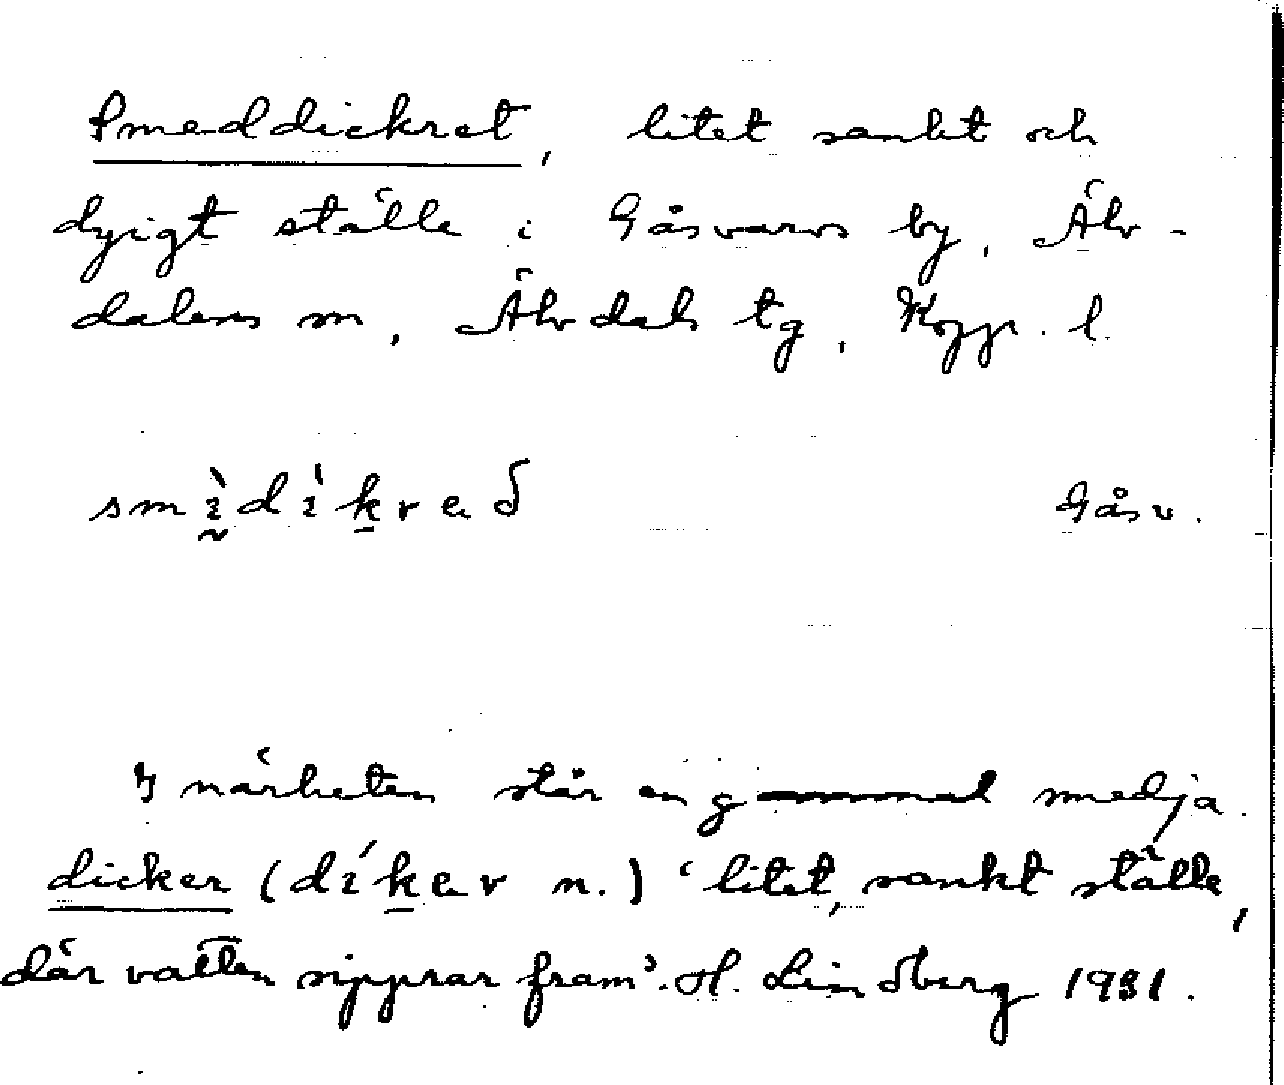 Smeddickret, litet sankt och
dyigt ställe i Gåsvarvs by, Älv-
dalens sn, Älvdals tg, Kopp. l.
Gåsv.
I närheten står en gammal smedja.
dicker (díker n.) 'litet, sankt ställe,
där vatten sipprar fram'. H. Lindberg 1931.